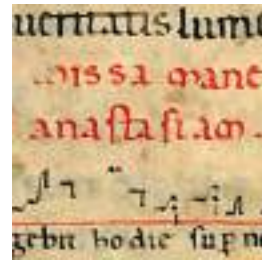 ueritatis lum
missa mane
anastasiam
gebit hodie sup n